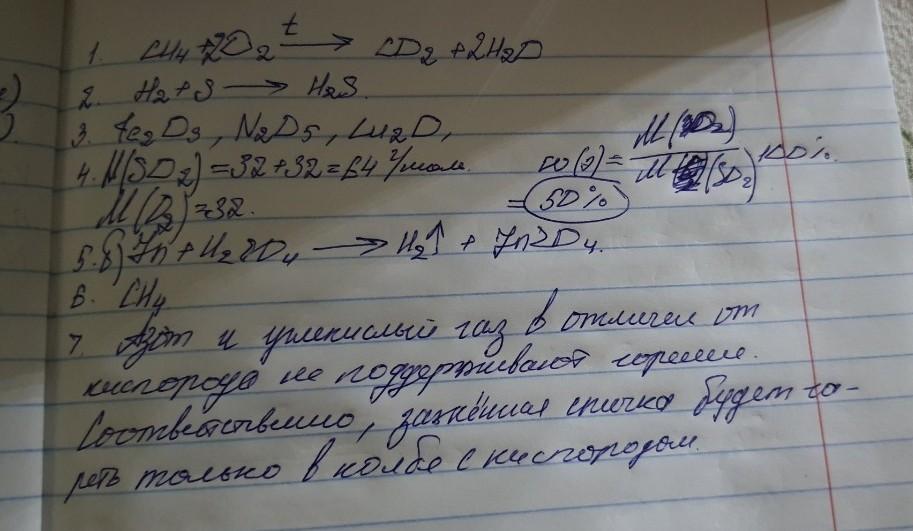 1. CH4 + 2O2 t → CO2 + 2H2O
2. H2 + S → H2S.
3. Fe2O3, N2O5, Cu2O,
4. M(SO2) = 32 + 32 = 64 г/моль. w(O) = M(O2) / M(SO2) 100%.
M(O2) = 32. = 50%
5. б) Zn + H2SO4 → H2↑ + ZnSO4.
6. CH4
7. Азот и углекислый газ в отличеи от
кислорода не поддерживают горение.
Соответственно, зажжённая спичка будет го-
реть только в колбе с кислородом.